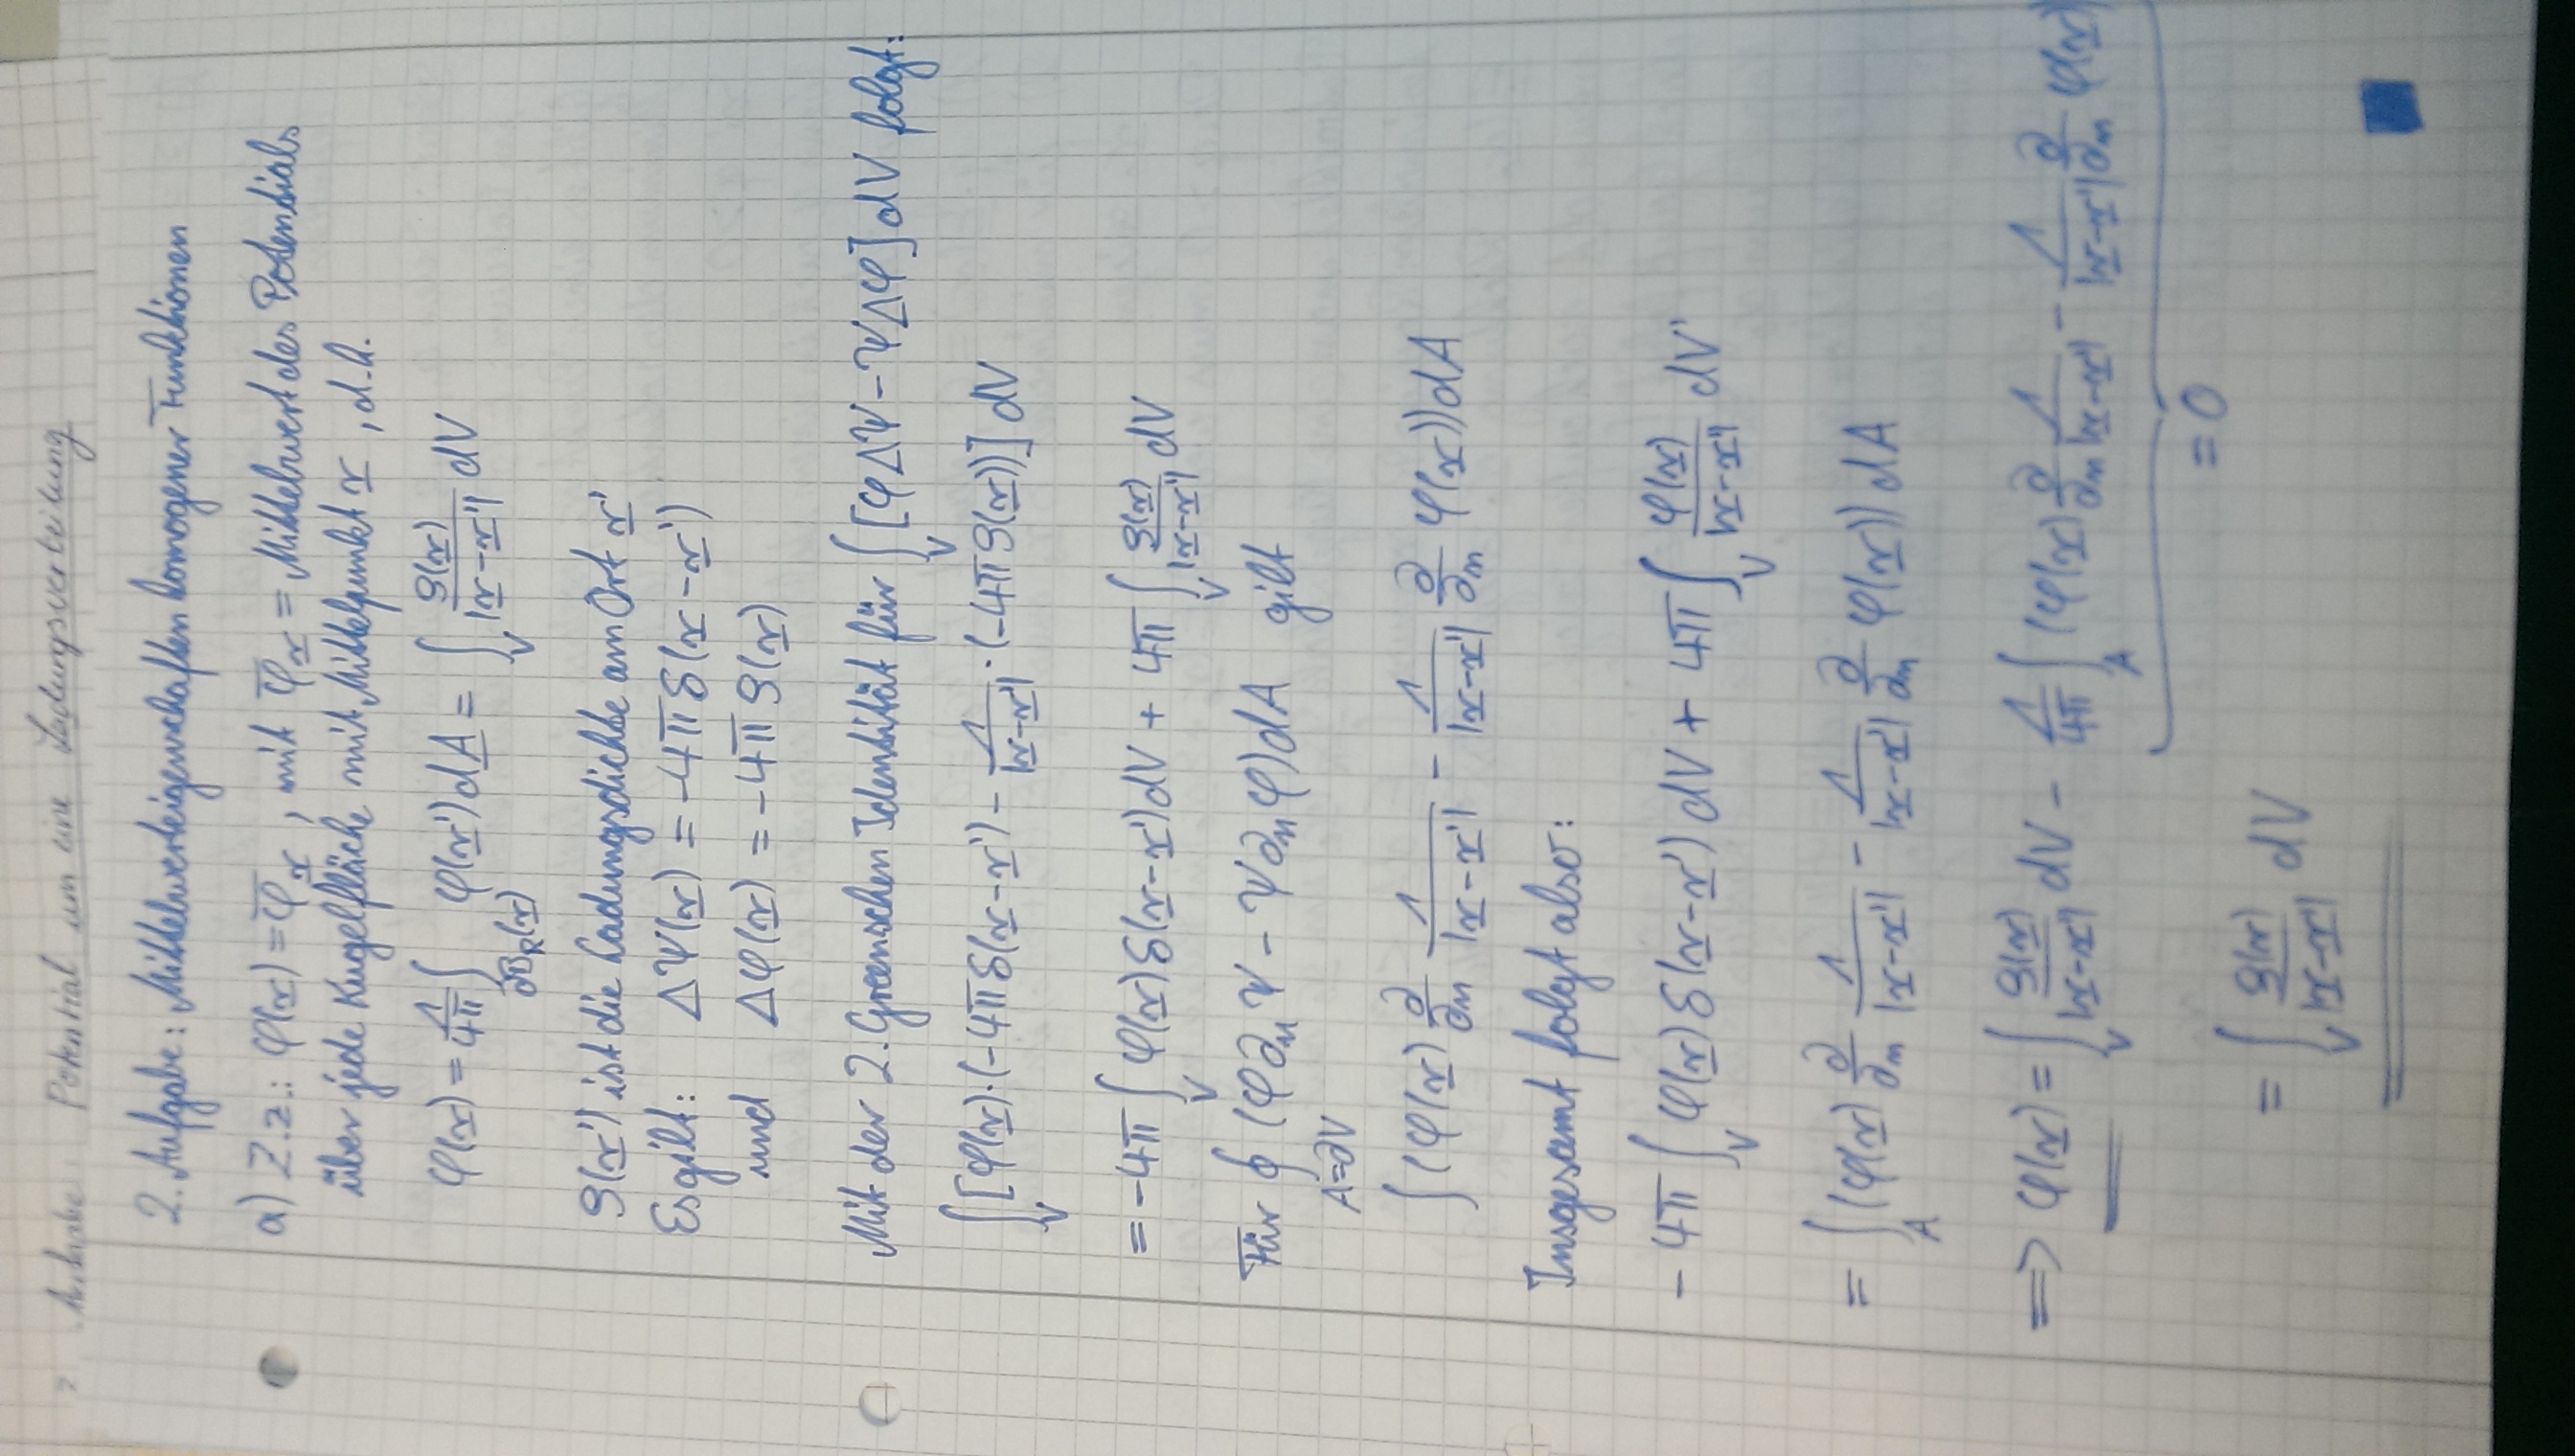 Aufgabe Potential um eine Ladungsverteilung
2. Aufgabe: Mittelwerteigenschaften homogener Funktionen
a) Z.z.: φ(x) = φ̅_x, mit φ̅_x = Mittelwert des Potentials
über jede Kugelfläche mit Mittelpunkt x, d.h.
φ(x) = 1/4π ∫_{∂B_R(x)} φ(x')dA = ∫_V ρ(x)/|x-x'| dV
ρ(x') ist die Ladungsdichte am Ort x'
Es gilt: ΔΨ(x) = -4π δ(x-x')
und Δφ(x) = -4π ρ(x)
Mit der 2. Greenschen Identität für ∫_V [φΔΨ-ΨΔφ]dV folgt:
∫_V [φ(x)·(-4πδ(x-x') - 1/|x-x'|·(-4πρ(x))] dV
= -4π ∫_V φ(x)δ(x-x')dV + 4π ∫_V ρ(x)/|x-x'| dV
Für ∮_{A=∂V} (φ∂_nΨ - Ψ∂_nφ)dA gilt
∫(φ(x) ∂/∂n 1/|x-x'| - 1/|x-x'| ∂/∂n φ(x))dA
Insgesamt folgt also:
-4π ∫_V φ(x)δ(x-x')dV + 4π ∫_V φ(x)/|x-x'| dV'
= ∫_A (φ(x) ∂/∂n 1/|x-x'| - 1/|x-x'| ∂/∂n φ(x)) dA
=> φ(x) = ∫_V ρ(x)/|x-x'| dV - 1/4π ∫_A (φ(x) ∂/∂n 1/|x-x'| - 1/|x-x'| ∂/∂n φ(x)
= 0
= ∫_V ρ(x)/|x-x'| dV